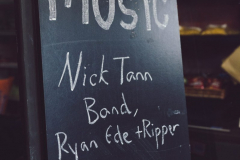 MUSIC
Nick Tann
Band,
Ryan Ede + Ripper